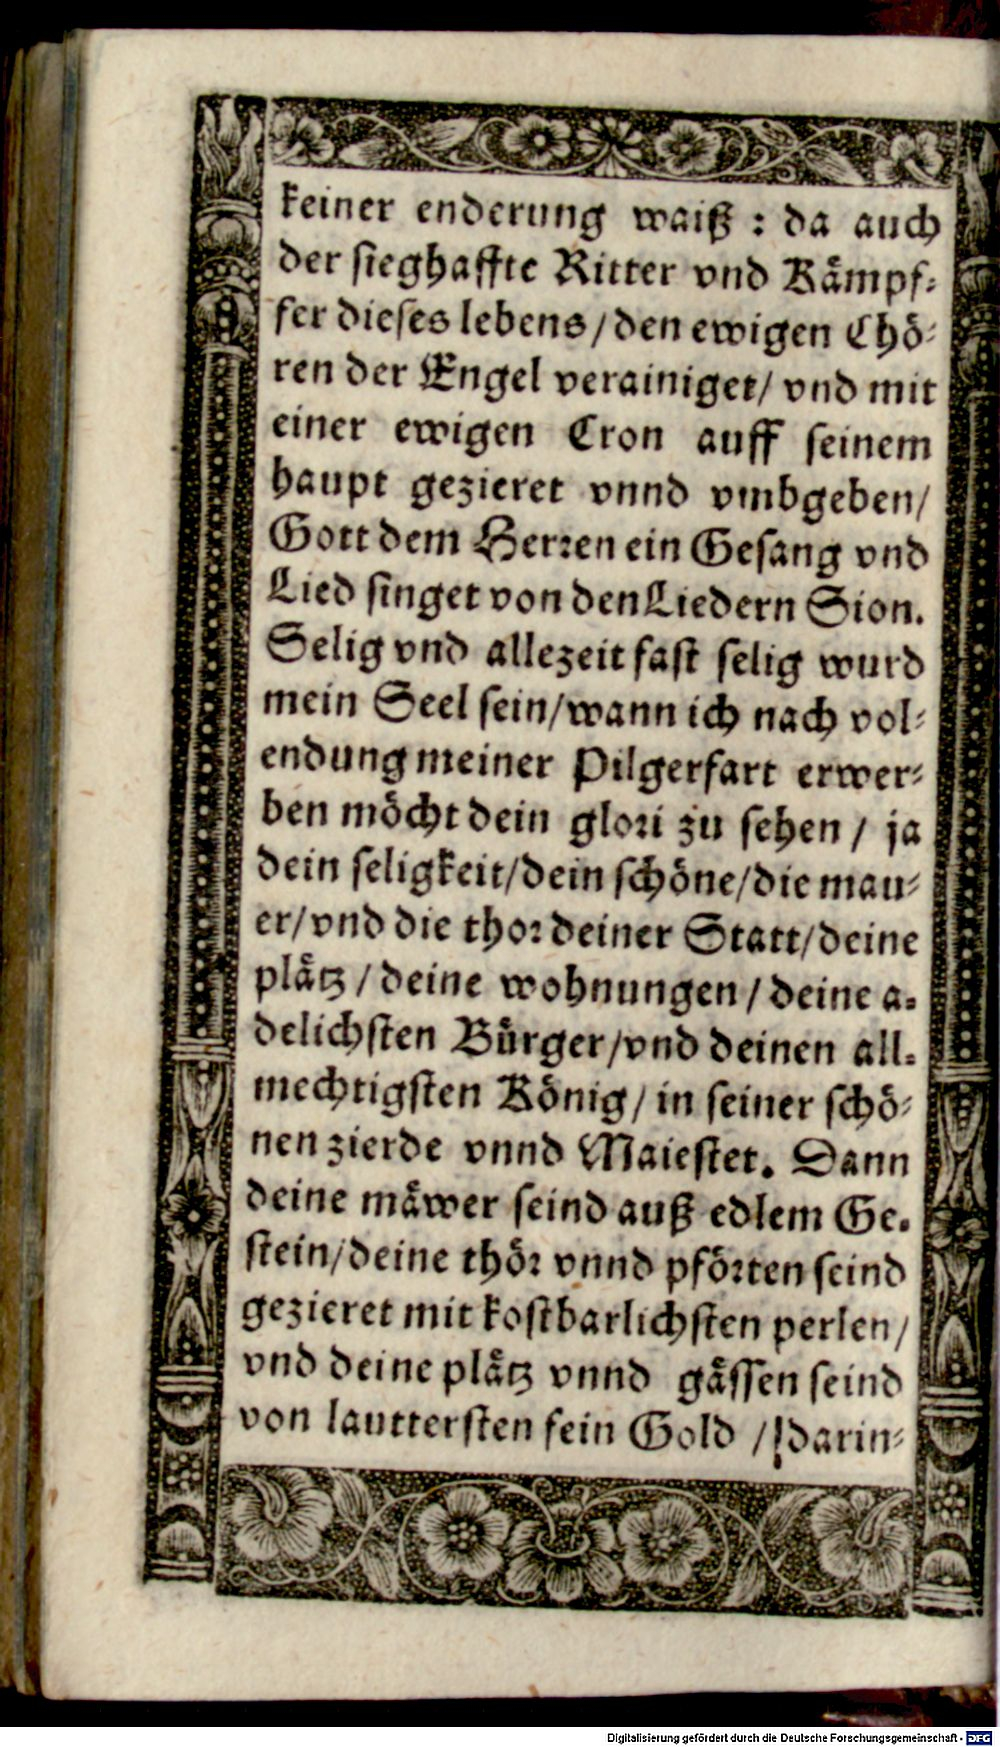 keiner enderung waiß : da auch
der sieghaffte Ritter vnd Kämpf-
fer dieses lebens / den ewigen Chö-
ren der Engel verainiget / vnd mit
einer ewigen Cron auff seinem
haupt gezieret vnnd vmbgeben /
Gott dem Herren ein Gesang vnd
Lied singet von den Liedern Sion.
Selig vnd allezeit fast selig wurd
mein Seel sein / wann ich nach vol-
endung meiner Pilgerfart erwer-
ben möcht dein glori zu sehen / ja
dein seligkeit / dein schöne / die mau-
er / vnd die thor deiner Statt / deine
plätz / deine wohnungen / deine a-
delichsten Bürger / vnd deinen all-
mechtigsten König / in seiner schö-
nen zierde vnnd Maiestet. Dann
deine mäwer seind auß edlem Ge-
stein / deine thör vnnd pförten seind
gezieret mit kostbarlichsten perlen /
vnd deine plätz vnnd gässen seind
von lauttersten fein Gold / darin-
Digitalisierung gefördert durch die Deutsche Forschungsgemeinschaft - DFG